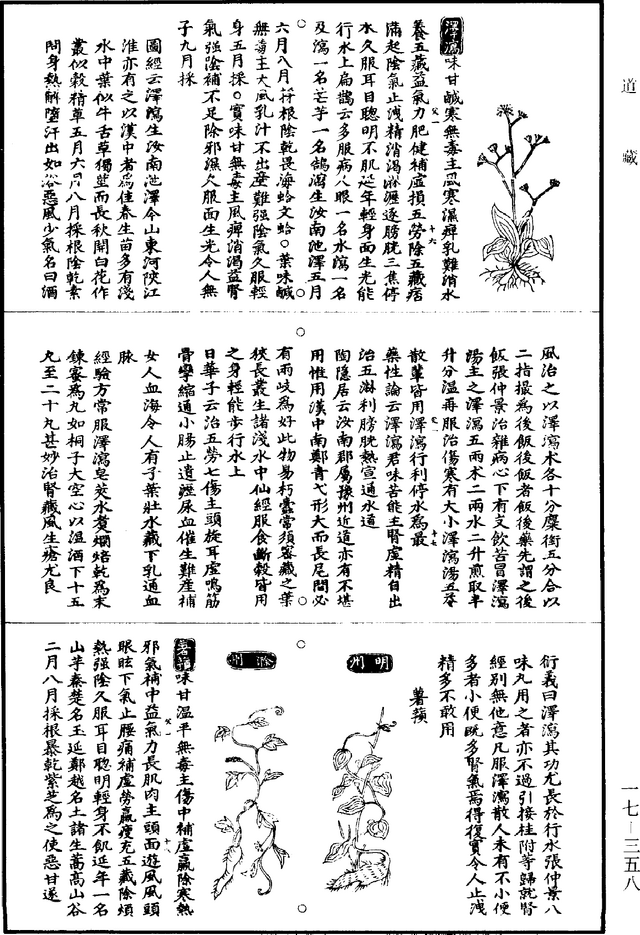 道藏
澤瀉味甘鹹寒無毒主風寒濕痺乳難消水
養五藏益氣力肥健補虛損五勞除五藏痞
滿起陰氣止洩精消渴淋瀝逐膀胱三焦停
水久服耳目聰明不肌延年輕身面生光能
行水上扁鵲云多服病人眼一名水瀉一名
及瀉一名芒芋一名鵠瀉生汝南池澤五月
六月八月採根陰乾畏海蛤文蛤○葉味鹹
無毒主大風乳汁不出產難強陰氣久服輕
身五月採○實味甘無毒主風痺消渴益腎
氣強陰補不足除邪濕久服面生光令人無
子九月採
圖經云澤瀉生汝南池澤今山東河陝江
淮亦有之以漢中者爲佳春生苗多有淺
水中葉似牛舌草獨莖而長秋開白花作
叢似穀精草五月六月八月採根陰乾素
問身熱解墮汗出如浴惡風少氣名曰酒
風治之以澤瀉朮各十分麋銜五分合以
二指撮爲後飯後飯者飯後藥先謂之後
飯張仲景治雜病心下有支飲苦冒澤瀉
湯主之澤瀉五兩朮二兩水二升煎取半
升分温再服治傷寒有大小澤瀉湯五苓
散輩皆用澤瀉行利停水爲最
藥性論云澤瀉君味苦能主腎虛精自出
治五淋利膀胱熱宣通水道
陶隱居云汝南郡屬豫州近道亦有不堪
用惟用漢中南鄭青弋形大而長尾間必
有兩歧爲好此物易朽蠹常須密藏之葉
狹長叢生諸淺水中仙經服食斷穀皆用
之身輕能步行水上
日華子云治五勞七傷主頭旋耳虛鳴筋
骨攣縮通小腸止遺瀝尿血催生難產補
女人血海令人有子葉壯水藏下乳通血
脉
經驗方常服澤瀉皂莢水煑爛焙乾爲末
鍊蜜爲丸如桐子大空心以温酒下十五
丸至二十九甚妙治腎藏風生瘡尤良
衍義曰澤瀉其功尤長於行水張仲景八
味丸用之者亦不過引接桂附等歸就腎
經別無他意凡服澤瀉散人未有不小便
多者小便既多腎氣焉得復實今人止洩
精多不敢用
薯蕷
明州
滁州
薯蕷味甘温平無毒主傷中補虛羸除寒熱
邪氣補中益氣力長肌肉主頭面遊風風頭
眼眩下氣止腰痛補虛勞羸瘦充五藏除煩
熱強陰久服耳目聰明輕身不飢延年一名
山芋秦楚名玉延鄭越名土諸生嵩高山谷
二月八月採根暴乾紫芝爲之使惡甘遂
一七—三五八